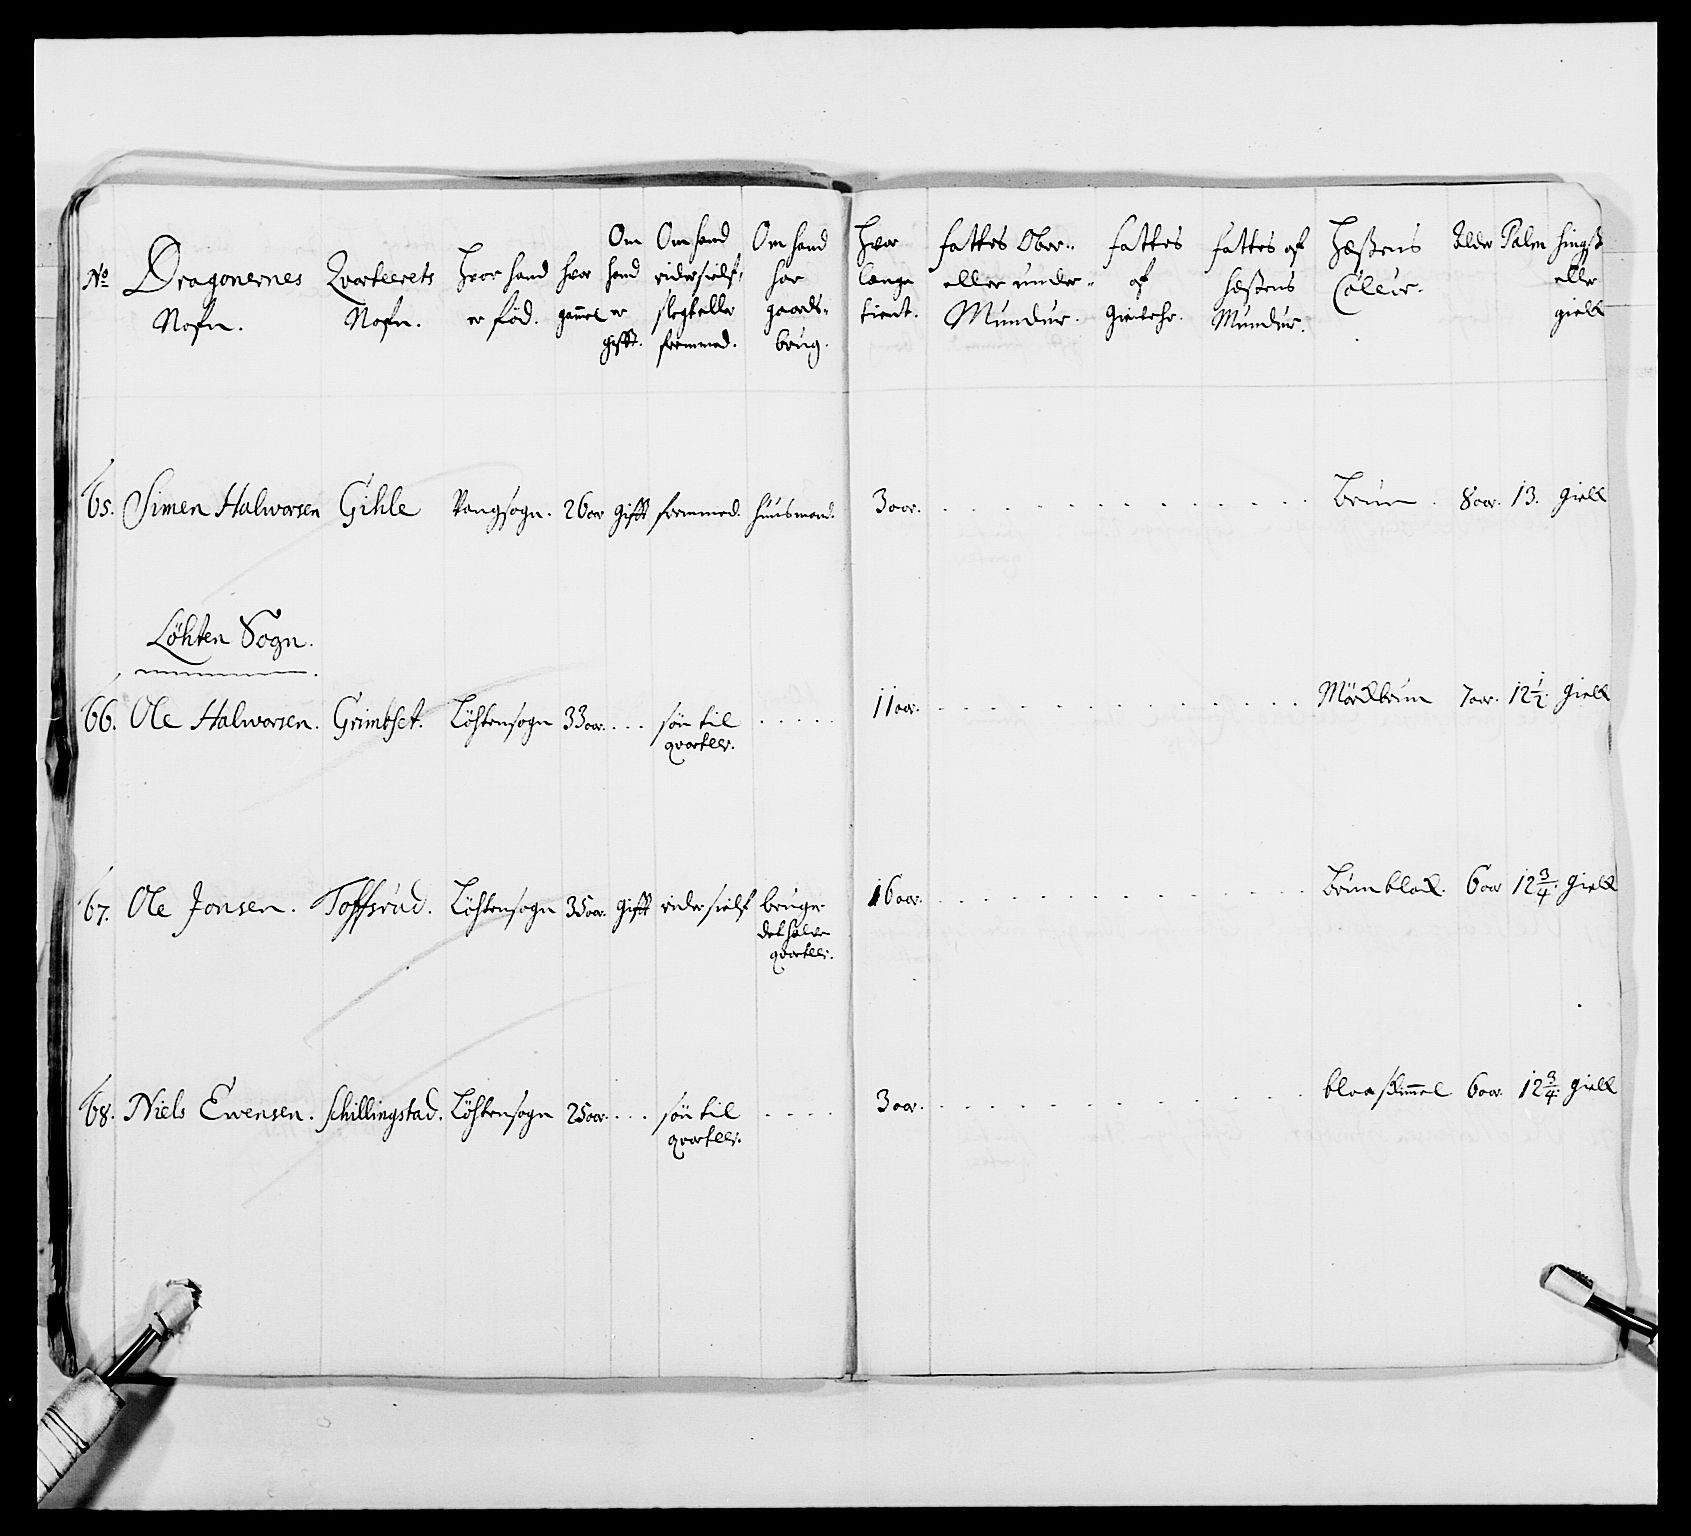 No
Dragonernes Nafn.
Qvarteerets Nafn.
Hvor hand er född.
hvor gammel
Om hand er gifft.
Om hand rider sielf, slegt eller fremmed.
Om hand har gaards-brug.
Hvor længe tient.
fattes Ober- eller under- Mundur.
fattes af Gewehr.
fattes af Hæstens Mundur.
Hæstens Cöleur.
Alder
Palm
Hingst eller gield
65. Simen Halworsen Gihle Vangsogn. 26 aar gifft fremmed. huusmand. 3 aar. Bruun. 8 aar. 13. gield
Löhten Sogn.
66. Ole Halworsen. Grimbset. Löhtensogn 33 aar. .... sön til .... 11 aar. Mörckbruun 7 aar. 12 1/2. gield
qvarteer.
67. Ole Jonsen. Toffsrud. Löhtensogn 35 aar. gifft rider sielf bruger 16 aar. Bruunblack. 6 aar 12 3/4. gield
det halve
qvarteer.
68. Niels Ewensen. Schillingstad. Löhtensogn 25 aar. .... sön til .... 3 aar. blaaskimmel 6 aar. 12 3/4. gield
qvarteer.